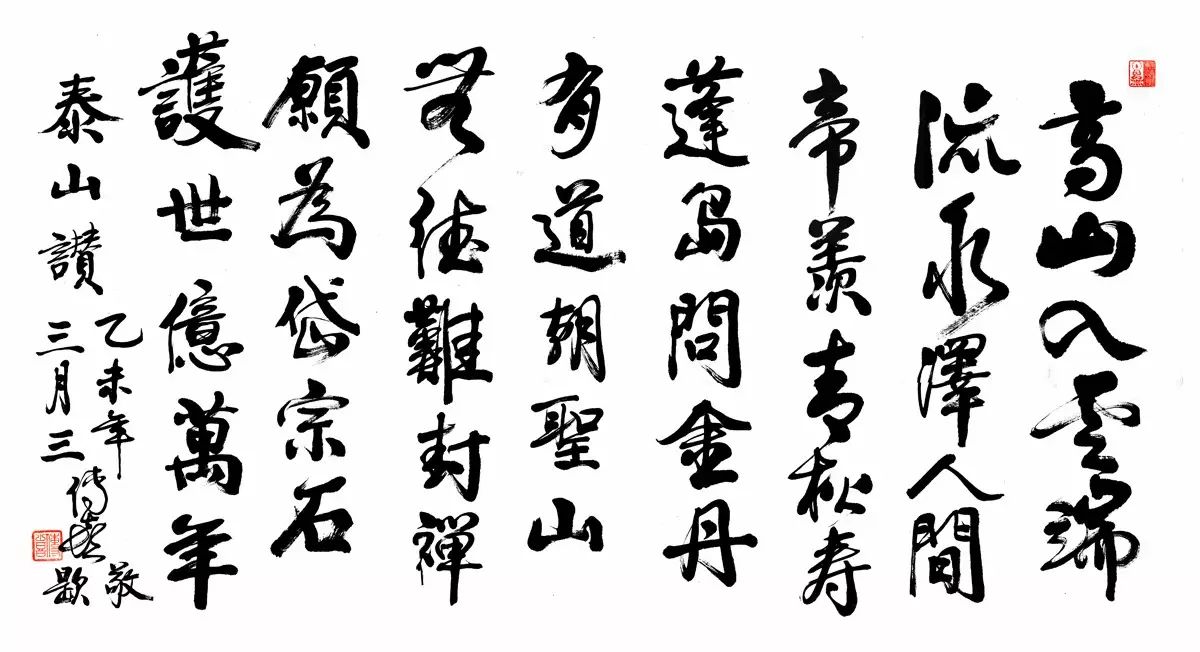 高山入云端
流水澤人間
帝羨青秋寿
蓬島問金丹
有道朝聖山
無德難封禪
願為岱宗石
護世億萬年
泰山讃
乙未年
三月三
敬題